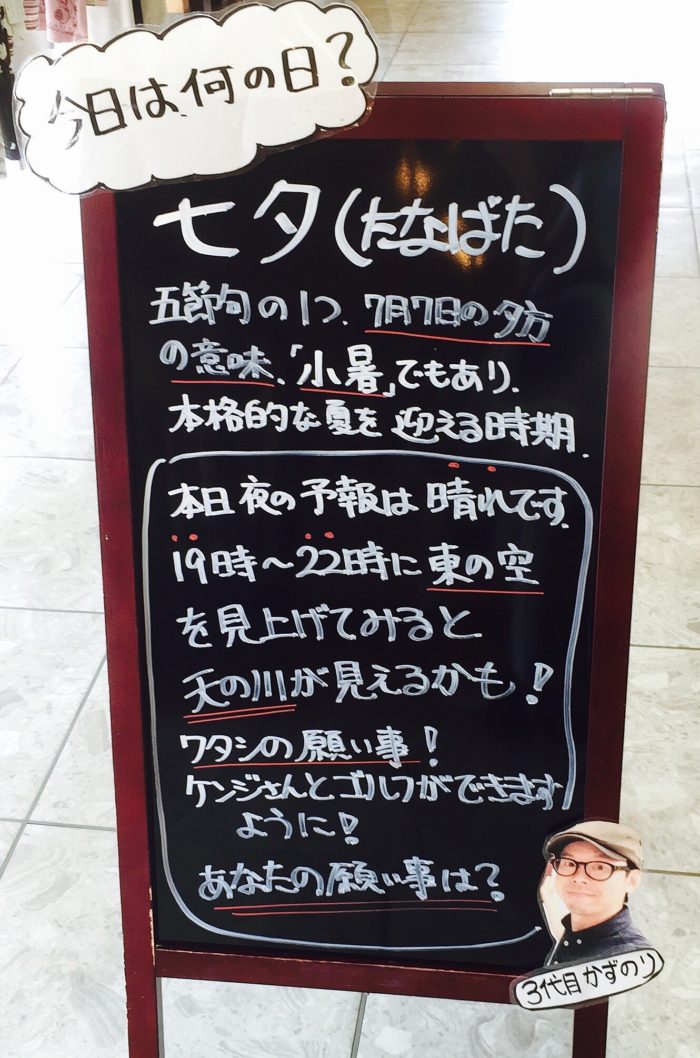 今日は、何の日？
七夕（たなばた）
五節句の1つ、7月7日の夕方
の意味、「小暑」でもあり、
本格的な夏を迎える時期．
本日夜の予報は晴れです．
19時〜22時に東の空
を見上げてみると、
天の川が見えるかも！
ワタシの願い事！
ケンジさんとゴルフができます
ように！
あなたの願い事は？
3代目かずのり